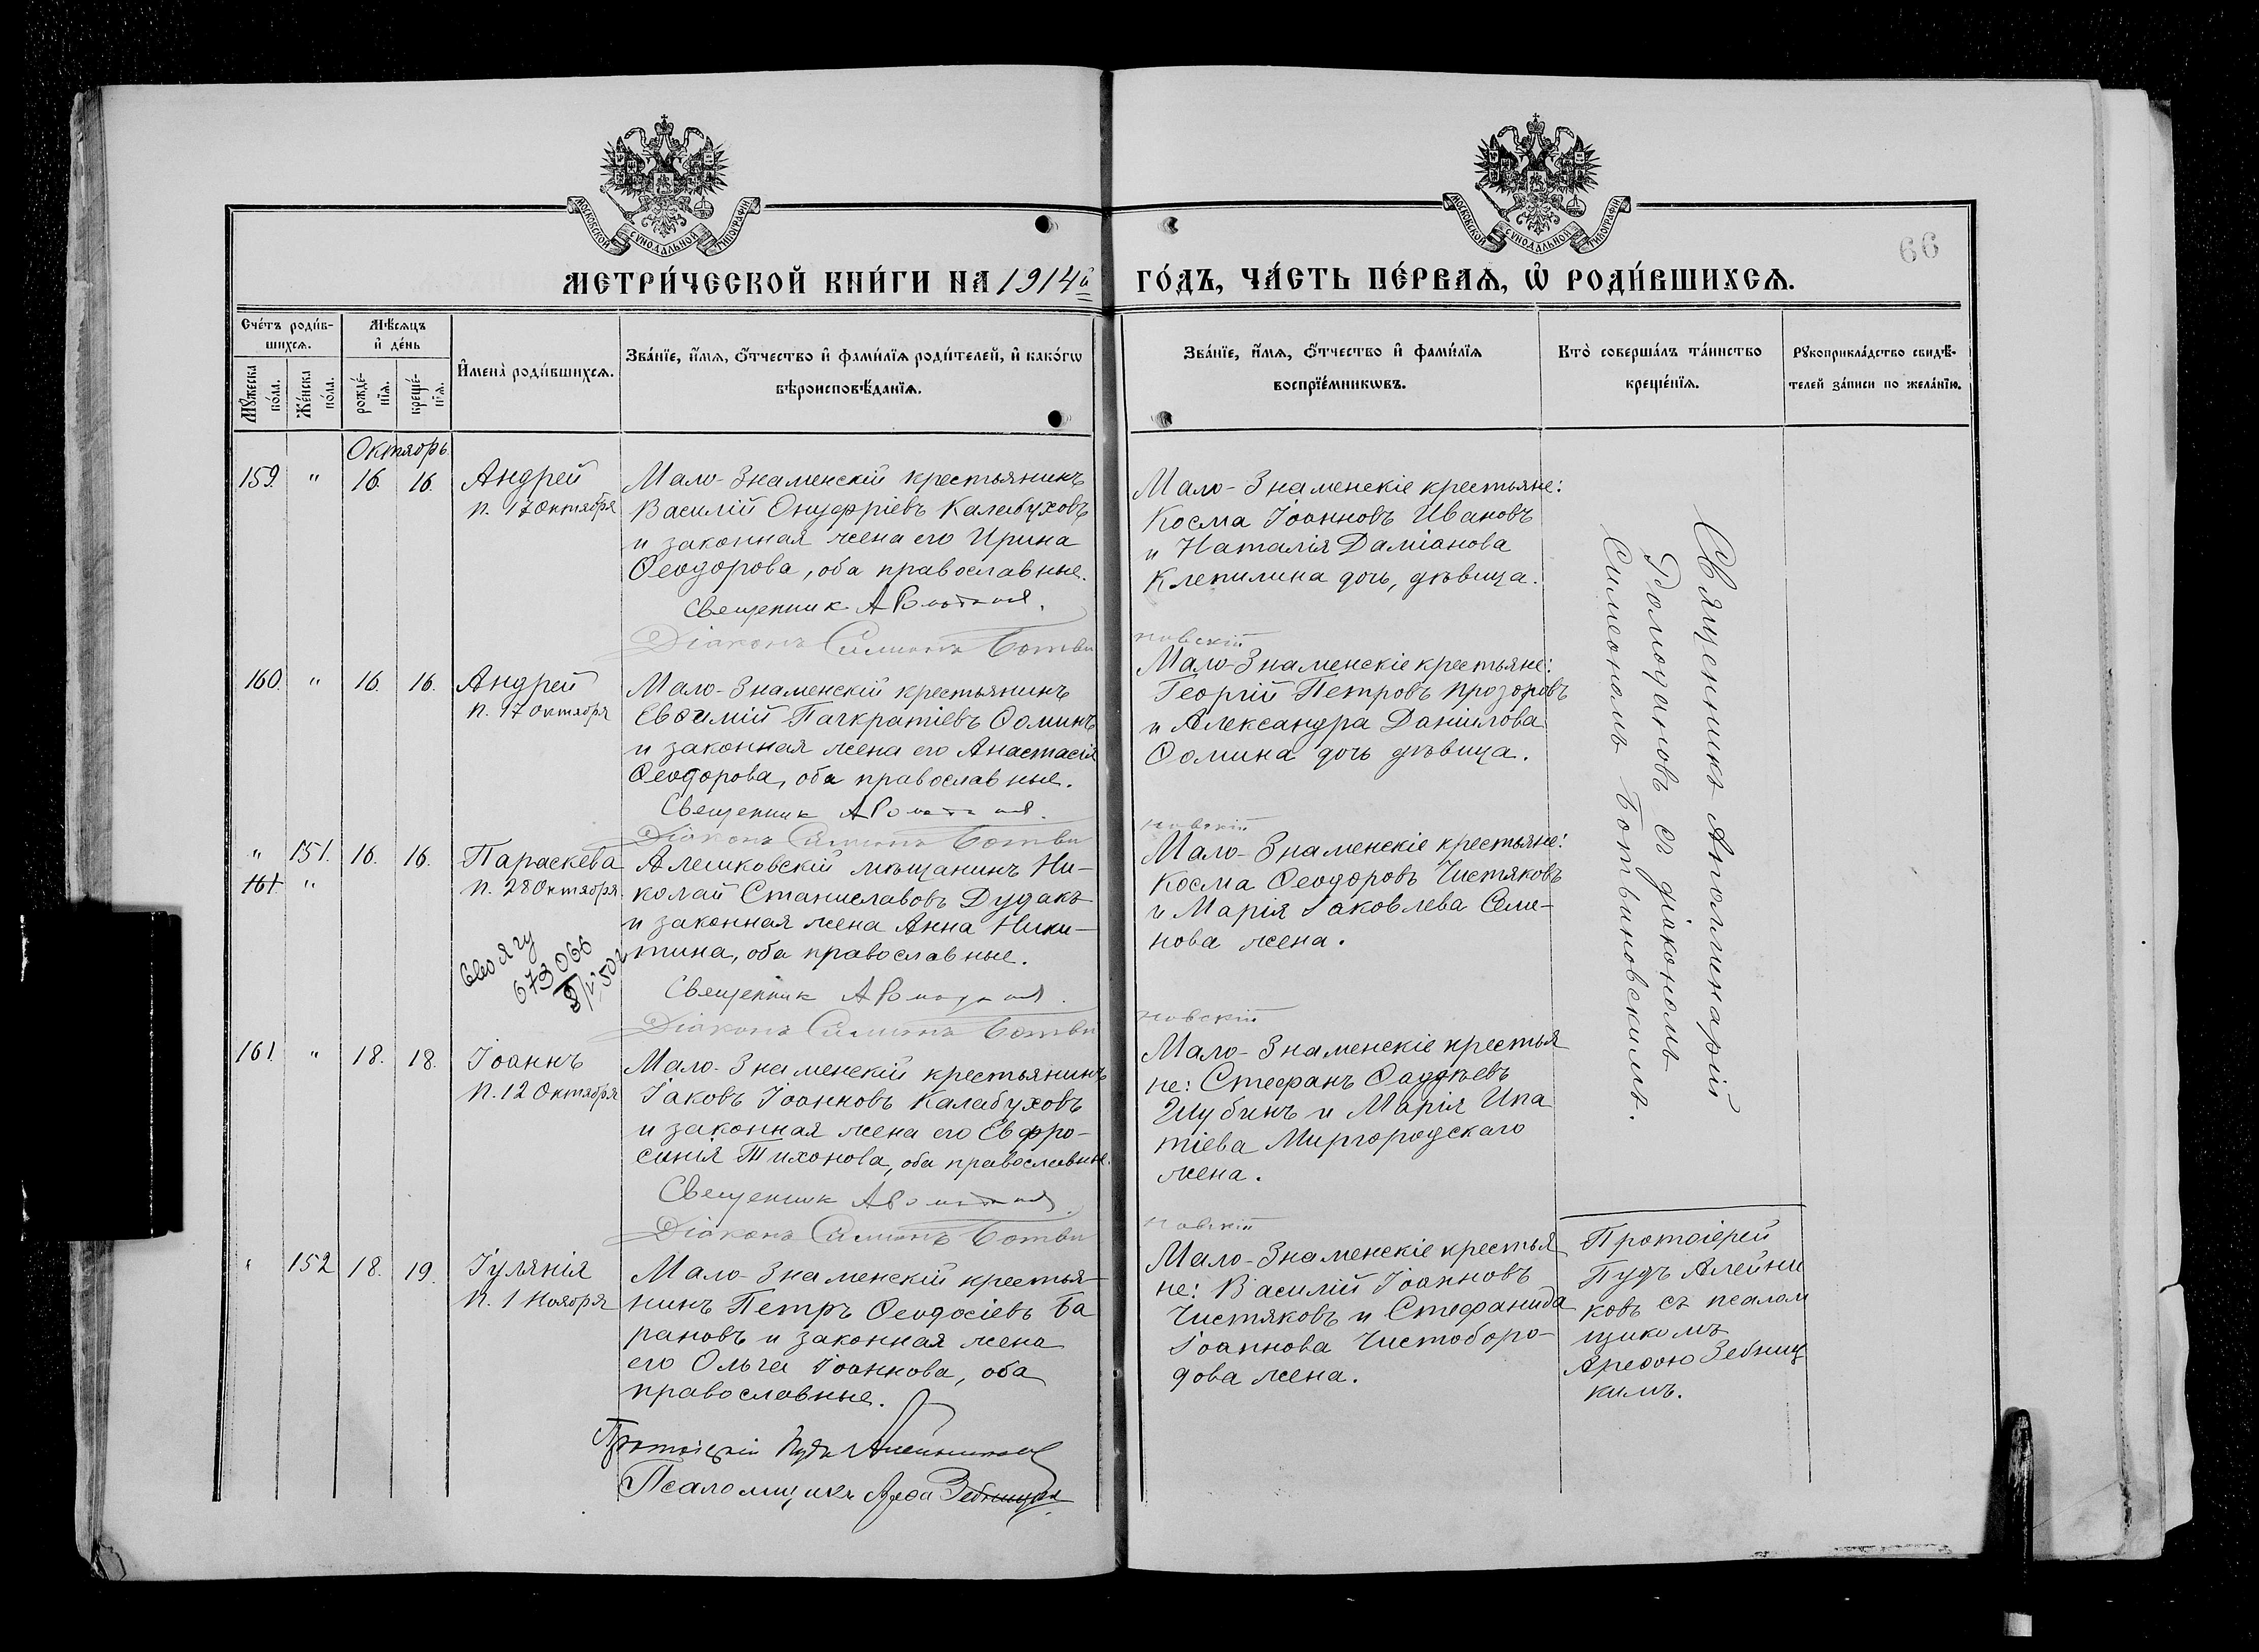 МОСКОВСКОЙ СѴНОДАЛЬНОЙ ТИПОГРАФІИ
МОСКОВСКОЙ СѴНОДАЛЬНОЙ ТИПОГРАФІИ
66
МЕТРИ́ЧЕСКОЙ КНИ́ГИ НА 1914й ГО́ДЪ, ЧА́СТЬ ПЕ́РВАѦ, Ѽ РОДИ́ВШИХСѦ.
Сче́тъ роди́в-
шихсѧ.
Мѣ́сѧцъ
и҆ де́нь
Мꙋ́жеска по́ла.
Же́нска по́ла.
рожде́-
нїѧ.
креще́-
нїѧ.
И҆мена̀ роди́вшихсѧ.
Зва́нїе, и҆́мѧ, ѻ҆́тчество и҆ фами́лїѧ роди́телей, и҆ како́гѡ
вѣроисповѣ́данїѧ.
Зва́нїе, и҆́мѧ, ѻ҆́тчество и҆ фами́лїѧ
воспрїе́мникѡвъ.
Кто̀ соверша́лъ та́инство
креще́нїѧ.
Рꙋкоприкла́дство свидѣ́-
телей за́писи по жела́нїю.
Октябрь
159. " 16. 16.
Андрей
п. 17 Октября
Мало-Знаменскій крестьянинъ
Василій Онуфріевъ Калабуховъ
и законная жена его Ирина
Ѳеодорова, оба православные.
Священник А Ромоданов.
Діаконъ Симеонъ Ботви
Мало-Знаменскіе крестьяне:
Косма Іоанновъ Ивановъ
и Наталія Даміанова
Клепилина дочь, дѣвица.
новскій
160. " 16. 16.
Андрей
п. 17 октября
Мало-Знаменскій крестьянинъ
Евѳимій Панкратіевъ Ѳоминъ
и законная жена его Анастасія
Ѳеодорова, оба православные.
Священник А Ромоданов.
Діаконъ Симеонъ Ботви
Мало-Знаменскіе крестьяне:
Георгій Петровъ Прозоровъ
и Александра Даніилова
Ѳомина дочь дѣвица.
новскій
" 151. 16. 16.
161. "
Параскева
п. 28 Октября
Алешковскій мѣщанинъ Ни-
колай Станиславовъ Дудакъ
и законная жена Анна Ники-
тина, оба православные.
Священник А Ромоданов.
Діаконъ Симеонъ Ботви
673066
Мало-Знаменскіе крестьяне:
Косма Ѳеодоровъ Чистяковъ
и Марія Іаковлева Семе-
нова жена.
новскій
161. " 18. 18.
Іоаннъ
п. 12 Октября
Мало-Знаменскій крестьянинъ
Іаковъ Іоанновъ Калабуховъ
и законная жена его Евфро-
синія Тихонова, оба православные.
Священник А Ромоданов.
Діаконъ Симеонъ Ботви
Мало-Знаменскіе крестья
не: Стефанъ Ѳаддѣевъ
Шубинъ и Марія Ипа
тіева Миргородскаго
жена.
новскій
" 152 18. 19.
Іуліанія
п. 1 Ноября
Мало-Знаменскій крестья-
нинъ Петръ Ѳеодосіевъ Ба
рановъ и законная жена
его Ольга Іоаннова, оба
православные.
Протоіерей Пудъ Алейников
Псаломщикъ Арефа Зебницкій
Мало-Знаменскіе крестья
не: Василій Іоанновъ
Чистяковъ и Стефанида
Іоаннова Чистоборо-
дова жена.
Священникъ Аполлинарій
Ромодановъ съ діакономъ
Симеономъ Ботвиновскимъ.
Протоіерей
Пудъ Алейни
ковъ съ псалом
щикомъ
Арефою Зебниц
кимъ.